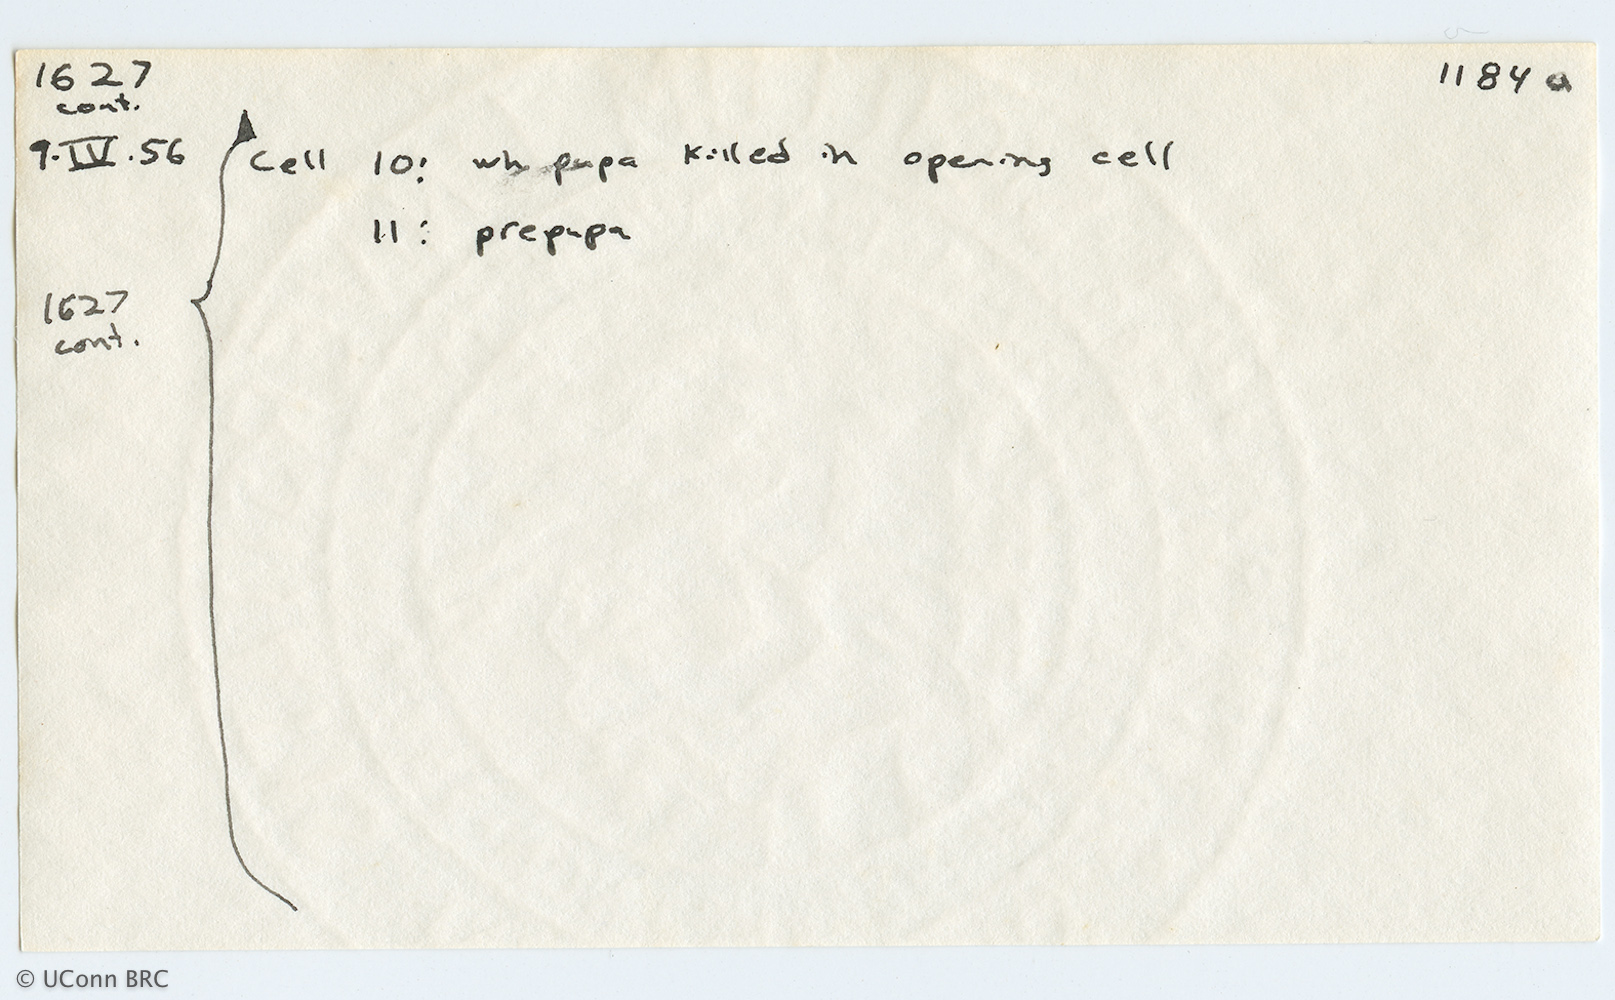 1627
cont.
1184 a
9.IV.56
Cell 10: wh pupa killed in opening cell
11: prepupa
1627
cont.
© UConn BRC